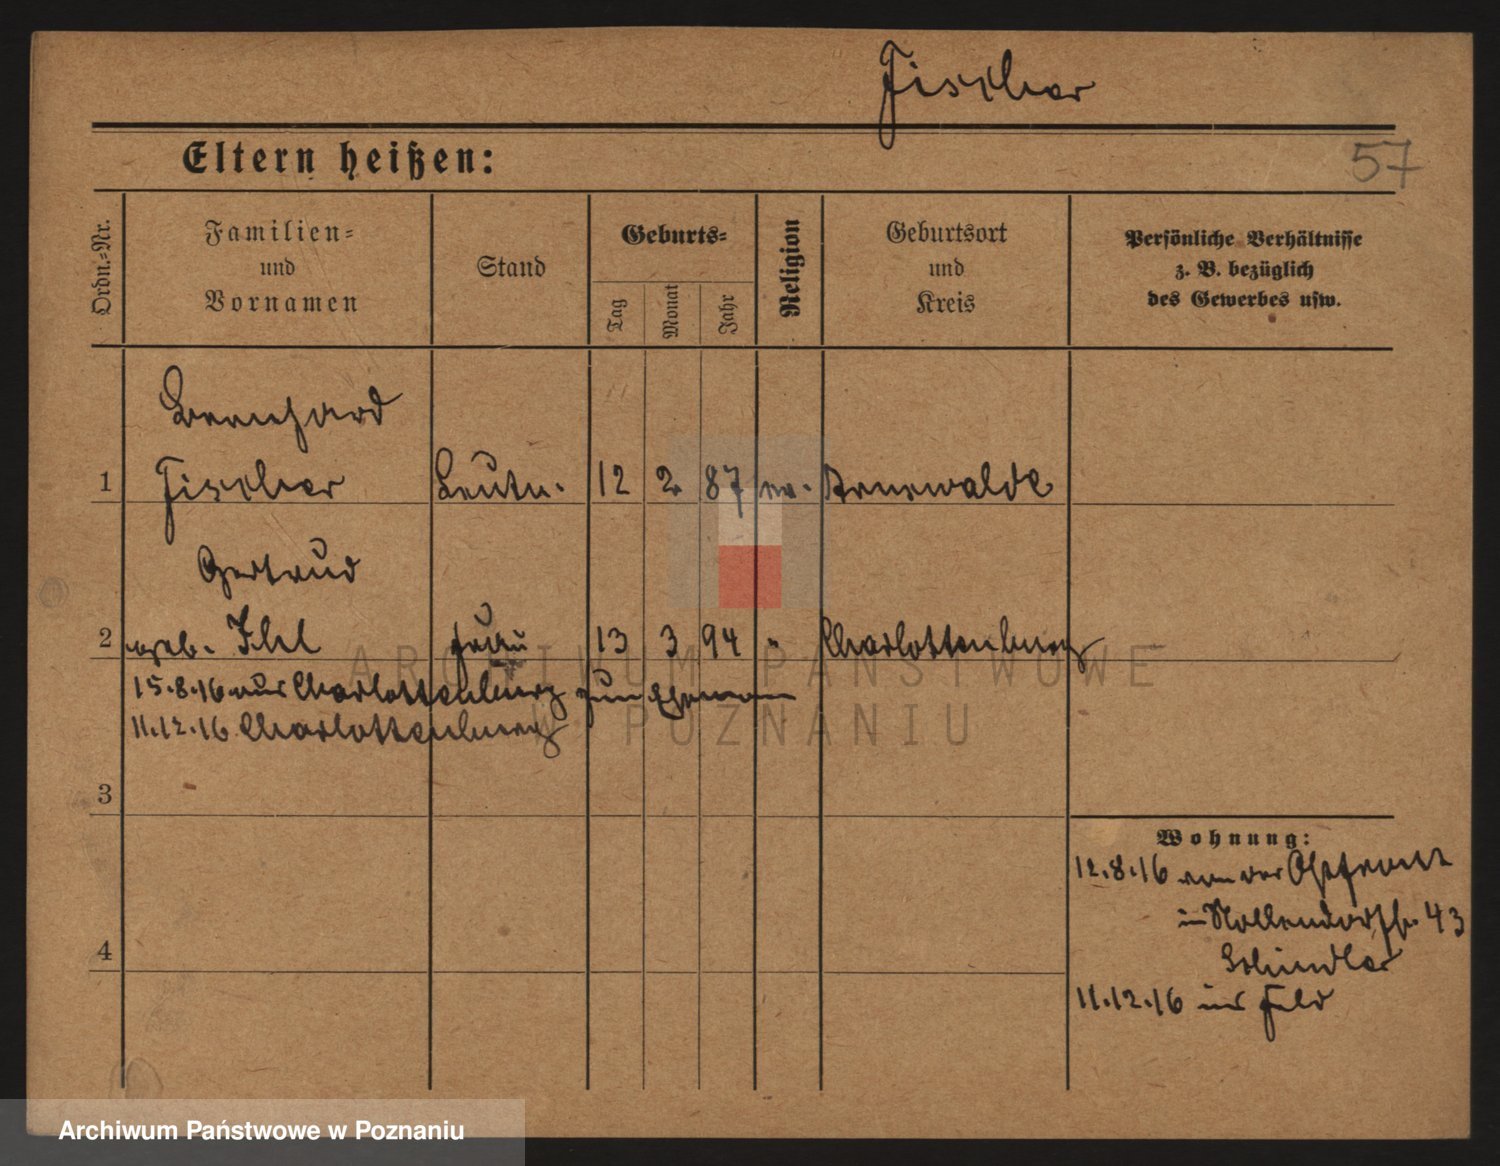 Fischer
Eltern heißen:
57
Ordn.-Nr.
Familien-
und
Vornamen
Stand
Geburts-
Tag
Monat
Jahr
Religion
Geburtsort
und
Kreis
Persönliche Verhältnisse
z. B. bezüglich
des Gewerbes usw.
Bernhard
1 Fischer Leutn. 12 2 87 ev. Arnswalde
Gertrud
2 geb. Ihl Frau 13 3 94 " Charlottenburg
15.8.16 aus Charlottenburg zum Ehemann
11.12.16 Charlottenburg
3
Wohnung:
12.8.16 von der Ostfront
in Nollendorfstr. 43
Schindler
4
11.12.16 ins Feld
ARCHIWUM PAŃSTWOWE
W POZNANIU
Archiwum Państwowe w Poznaniu